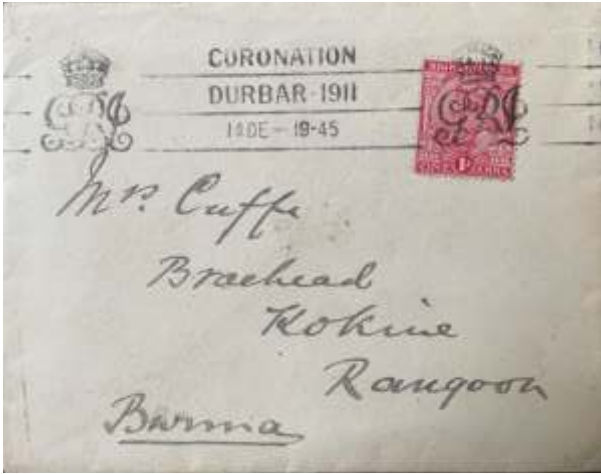 CORONATION
DURBAR-1911
DE-19-45
1A
ONE ANNA
Mrs. Cuffe
Braehead
Kokine
Rangoon
Burma